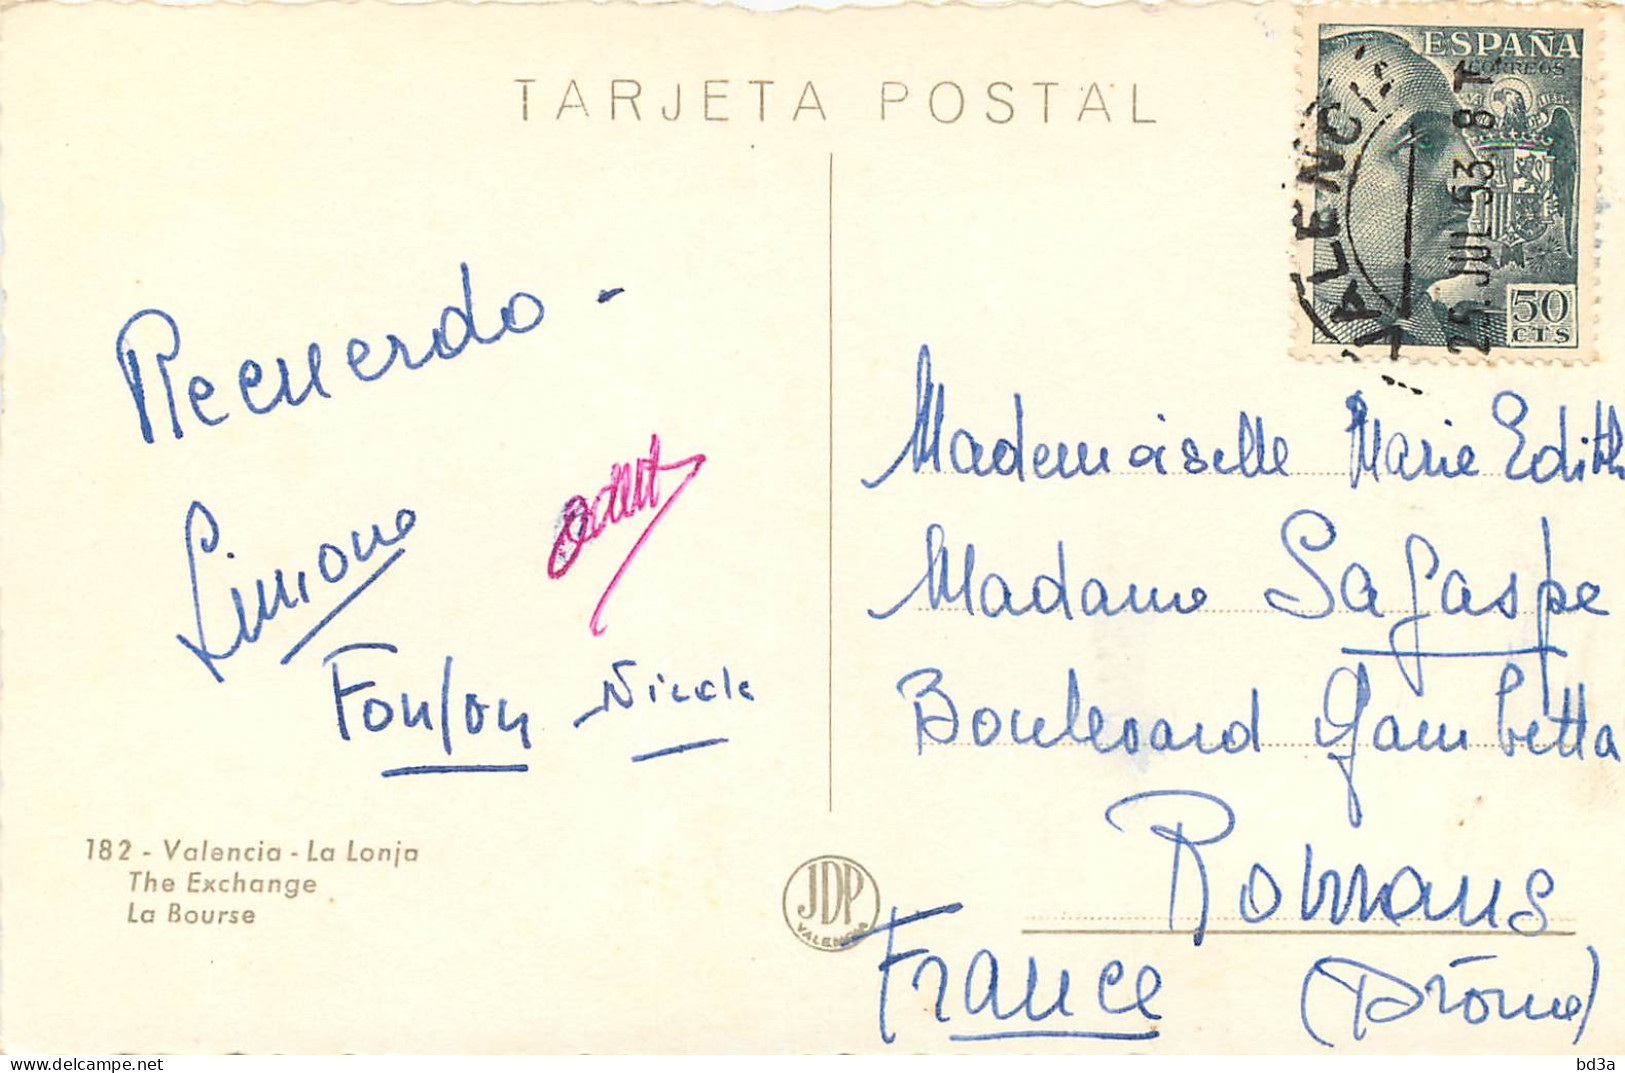 TARJETA POSTAL
ESPAÑA
CORREOS
50
CTS
VALENCIA
JUL 53 8T
Recuerdo -
Simone
Odett
Fonfon - Nicole
Mademoiselle Marie Edith
Madame Sagaspe
Boulevard Gambetta
Romans
France (Drôme)
182 - Valencia - La Lonja
The Exchange
La Bourse
JDP
VALENCIA
bd3a